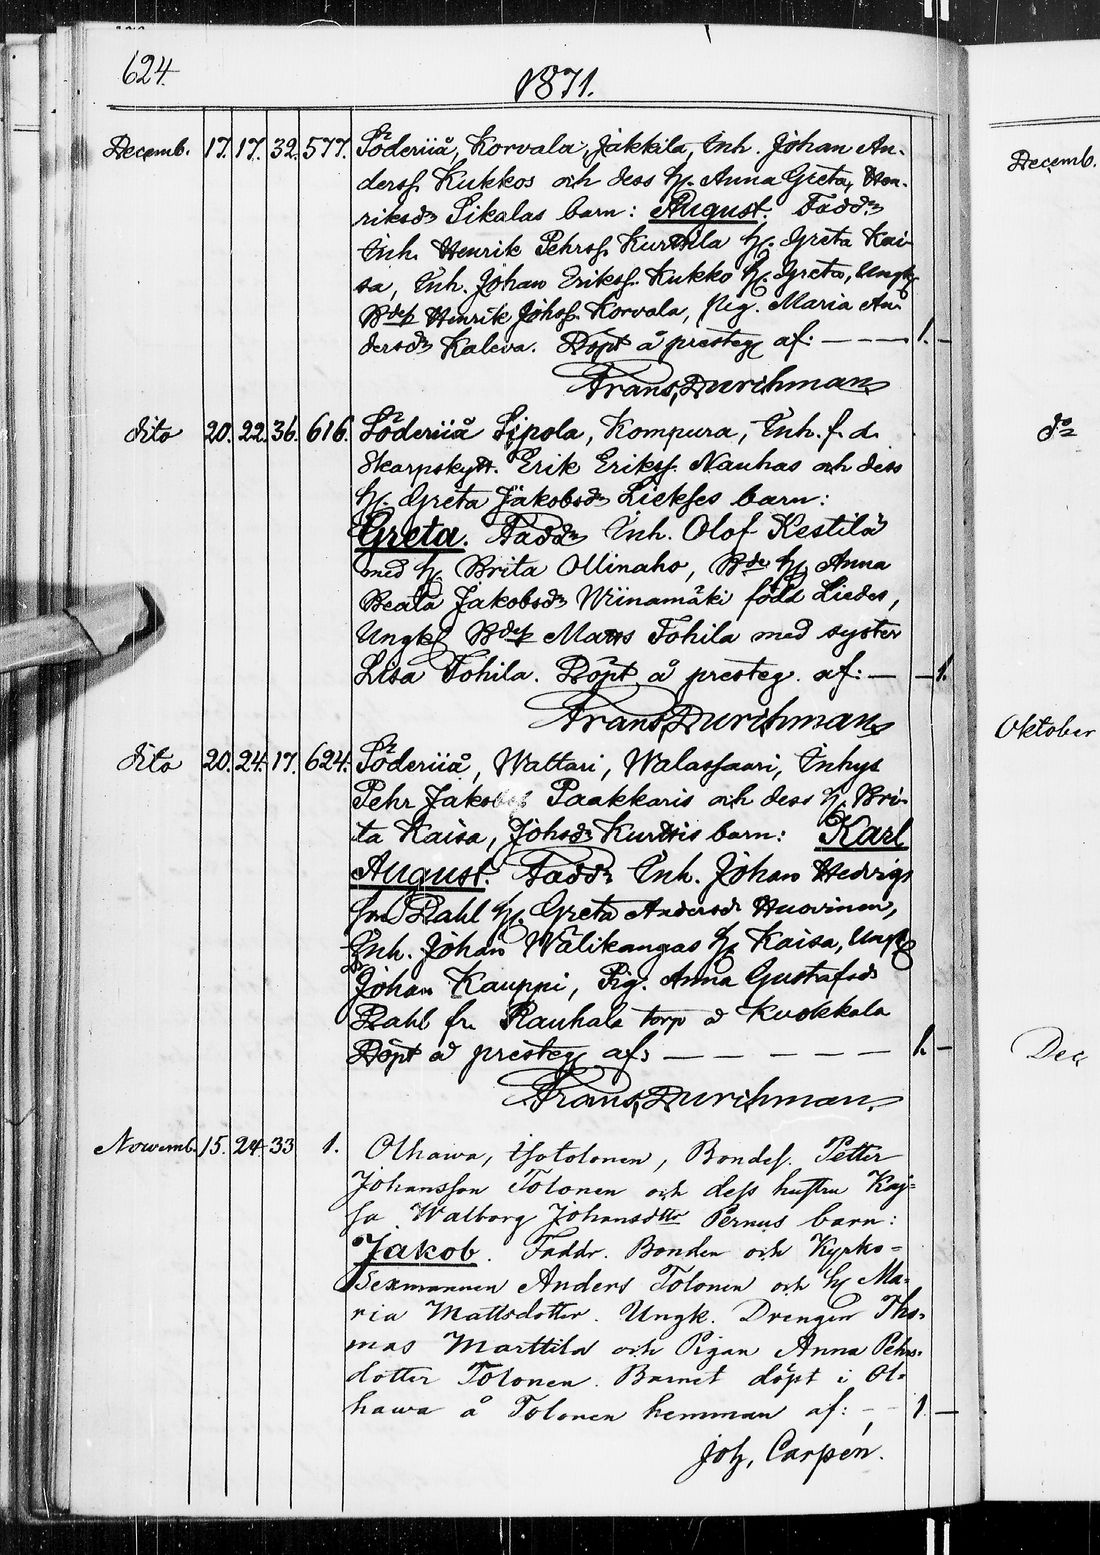 624.
1871.
Decemb. 17. 17. 32. 577. Söderiiå, Korvala, Jakkila, Inh. Johan An-
derss. Kukkos och dess h. Anna Greta, Hen-
riksdr Sikalas barn: August. Faddr
Inh. Henrik Pehrss. Kurttila h. Greta Kai-
sa, Inh. Johan Erikss. Kukko h. Greta, Ungk.
Bdes Henrik Johss. Korvala, Pig. Maria An-
dersdr Kaleva. Döpt å presteg. af: — — — 1. –
Frans Durchman
dito 20. 22. 36. 616. Söderiiå Sipola, Kompura, Inh. f. d.
Skarpskytt. Erik Erikss. Nauhas och dess
h. Greta Jakobsdr Liekses barn:
Greta. Faddr Inh. Olof Kestilä
med h. Brita Ollinaho, Bde h. Anna
Beata Jakobsdr Wiinamäki född Liedes,
Ungkl Bdes Matts Tohila med syster
Lisa Tohila. Döpt å presteg. af: — – 1.
Frans Durchman
dito 20. 24. 17. 624. Söderiiå, Wattari, Walassaari, Inhys
Pehr Jakobss Paakkaris och dess h. Bri-
ta Kaisa, Johsdr Kurttis barn: Karl
August. Faddr Inh. Johan Hedrigs
son Dahl h. Greta Andersdr Huovinen,
Inh. Johan Wälikangas h. Kaisa, Ungk
Johan Kauppi, Pig. Anna Gustafsdr
Dahl fr. Rauhala torp å Kuokkala
Döpt å presteg. af: — — — — — 1. –
Frans Durchman.
Novemb. 15. 24. 33 1. Olhawa, Isotolonen, Bondes. Petter
Johansson Tolonen och dess hustru Kaj-
sa Walborg Johansdttr Pernus barn:
Jakob. Faddr. Bonden och Kyrko-
Sexmannen Anders Tolonen och h. Ma-
ria Mattsdotter. Ungk. Drengen Tho-
mas Marttila och Pigan Anna Pehrs-
dotter Tolonen. Barnet döpt i Ol-
hawa å Tolonen hemman af: – – 1. –
Joh. Carpén.
Decemb.
do
Oktober
Dec